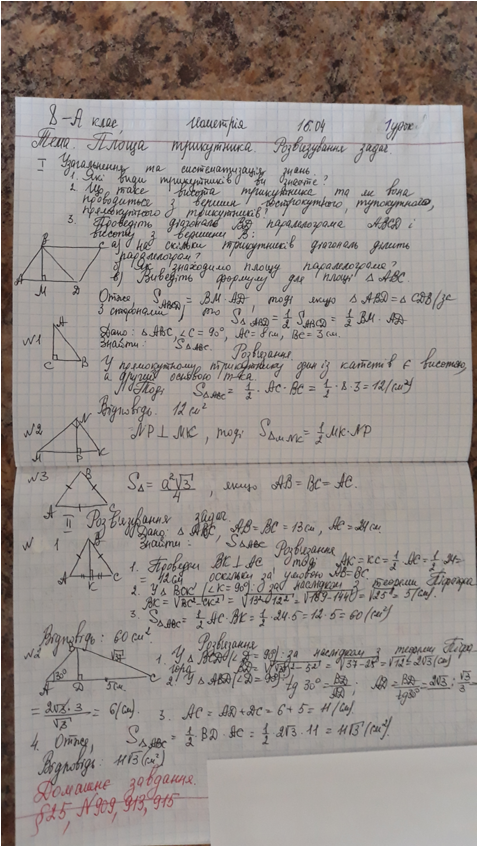 8-А клас Геометрія 16.04 1 урок
Тема. Площа трикутника. Розвʼязування задач
I Узагальнення та систематизація знань.
1. Які види трикутників ви знаєте?
2. Що таке висота трикутника та як вона
проводиться з вершин гострокутного, тупокутного,
прямокутного трикутників?
3. Проведіть діагональ BD паралелограма ABCD і
висоту з вершини B:
а) на скільки трикутників діагональ ділить
паралелограм?
б) Як знаходимо площу паралелограма?
в) Виведіть формулу для площі △ABC
B C
A M D
Отже S ABCD = BM·AD, тоді якщо △ABD = △CDB/за
3 сторонами/, то S△ABD = 1/2 S ABCD = 1/2 BM·AD.
N1 A
C B
Дано: △ABC, ∠C = 90°, AC = 8 см, BC = 3 см.
Знайти: S△ABC. Розвʼязання
У прямокутному трикутнику один із катетів є висотою,
а другий основою тр-ка.
Тоді S△ABC = 1/2·AC·BC = 1/2·8·3 = 12 (см²)
Відповідь. 12 см²
N2 N
M P K
NP⊥MK, тоді S△MNK = 1/2 MK·NP
N3 B
A C
S△ = a²√3/4, якщо AB = BC = AC.
II Розвʼязування задач
N 1 B
A K C
Дано: △ABC, AB = BC = 13 см, AC = 24 см
Знайти: S△ABC Розвʼязання
1. Проведем BK⊥AC тоді AK = KC = 1/2 AC = 1/2·24 =
= 12 см оскільки за умовою AB = BC
2. У △BCK /∠K = 90°/ за наслідком з теореми Піфагора
BK = √BC²-CK² = √13²-12² = √169-144 = √25 = 5 (см).
3. S△ABC = 1/2 AC·BK = 1/2·24·5 = 12·5 = 60 (см²)
Відповідь: 60 см².
N2 B
A 30° D 5см C √37
Розвʼязання
1. У △BCD (∠D = 90°) за наслідком з теореми Піфаго-
BD = √37-25 = √12 = 2√3 (см)
2. У △ABD (∠D = 90°) tg 30° = BD/AD; AD = BD/tg30° = 2√3 : √3/3 =
= 2√3·3/√3 = 6 (см). 3. AC = AD + DC = 6 + 5 = 11 (см).
4. Отже, S△ABC = 1/2 BD·AC = 1/2·2√3·11 = 11√3 (см²).
Відповідь: 11√3 (см²)
Домашнє завдання.
§25, N909, 913, 915